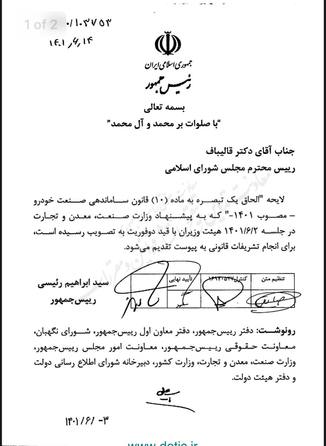 1 of 2
۰/۱۰۳۷۵۳
۱۴۰۱,۶,۱۴
جمهوری اسلامی ایران
رئیس جمهور
بسمه تعالی
"با صلوات بر محمد و آل محمد"
جناب آقای دکتر قالیباف
رییس محترم مجلس شورای اسلامی
لایحه "الحاق یک تبصره به ماده (۱۰) قانون ساماندهی صنعت خودرو
– مصوب ۱۴۰۱-" که به پیشنهاد وزارت صنعت، معدن و تجارت
در جلسه ۱۴۰۱/۶/۲ هیئت وزیران با قید دوفوریت به تصویب رسیده است،
برای انجام تشریفات قانونی به پیوست تقدیم می‌شود.
تنظیم متن
کنترل
تأیید نهایی
سید ابراهیم رئیسی
رییس‌جمهور
رونوشت: دفتر رییس‌جمهور، دفتر معاون اول رییس‌جمهور، شورای نگهبان،
معاونت حقوقی رییس‌جمهور، معاونت امور مجلس رییس‌جمهور،
وزارت صنعت، معدن و تجارت، وزارت کشور، دبیرخانه شورای اطلاع رسانی دولت
و دفتر هیئت دولت.
۱۴۰۱/۶/ -۳